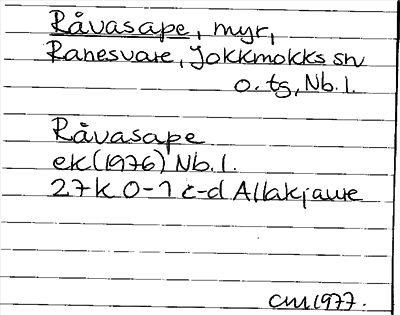 Råvasape, myr,
Ranesvare, Jokkmokks sn
o. tg, Nb. l.
Råvasape
ek (1976) Nb. l.
27K 0-1 c-d Allakjaure
CM 1977.